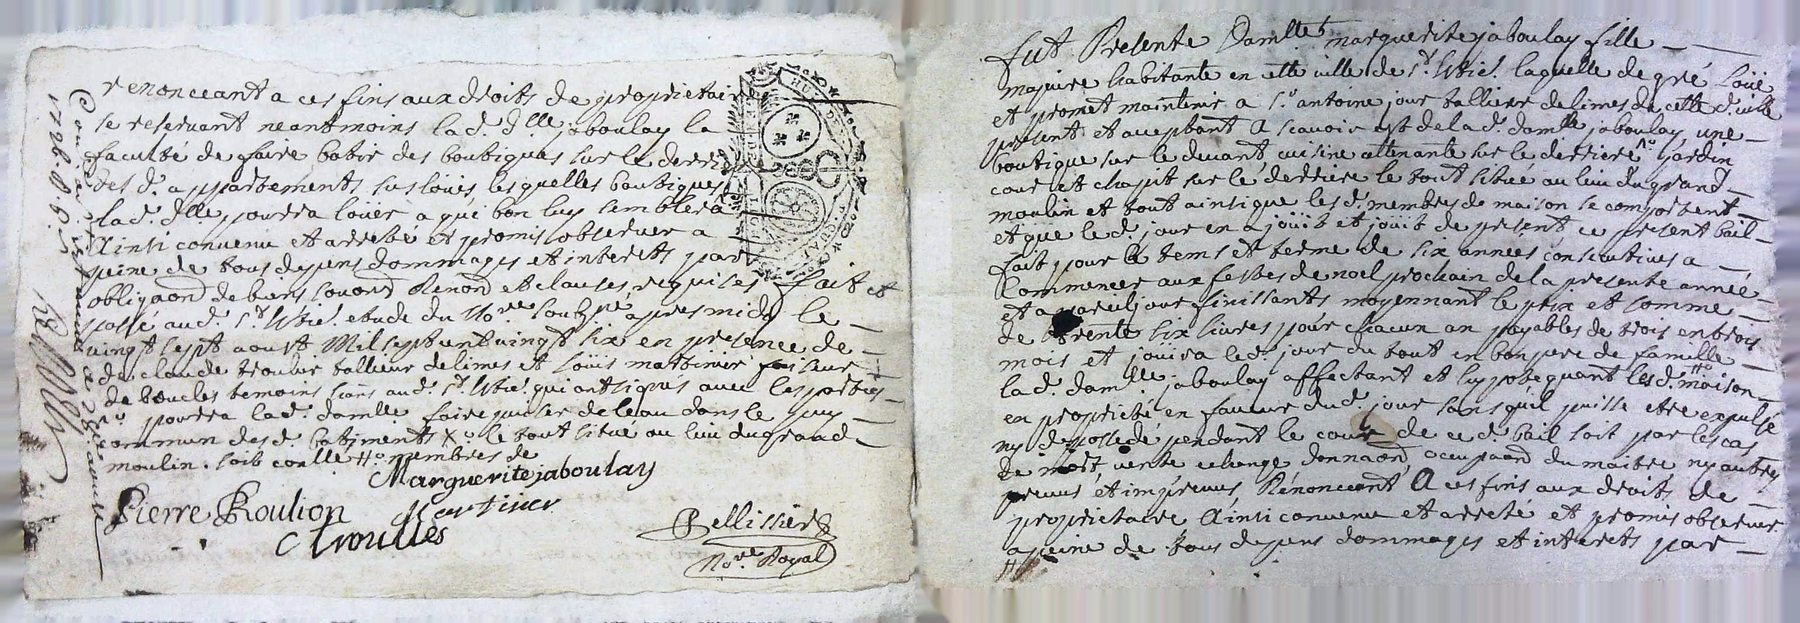 renonceant a ces fins aux droits de proprietaire
se reservant neantmoins lad. dlle jaboulay la
faculté de faire batir des boutiques sur le derrie
des d. appartements sus loüés lesquelles boutiques
lad. dlle pourra loüer a qui bon luy semblera
Ainsi convenu et arreté et promis observer a
peine de tous depens dommages et interets par
obligaond de biens soumond Renond et clauses requises fait et
passé aud. St. Etie. etude du Nore soubzné apres midy le
vingt sept aoust Mil sept cent vingt six en presence de
de claude trouiller tallieur de limes et Loüis martinier faiseur
de boucles temoins sians aud. St. Etie. qui ont signés avec les parties
pourra lad. damlle faire puiser de leau dans le puy
commun des d. batiments Xo le tout situé au lieu du grand
moulin. soit conllé #o membres de
Marguerite jaboulay
Pierre Roulion
Martinier
C trouilles
Pellissier
Nore. Royal
1726. a St.
fut Presente Damlle marguerite jaboulay fille
majeure habitante en cette ville de St. Etie. laquelle de gré loüe
et promet maintenir a Sr. antoine jour tallieur de limes de cette d. ville
present et acceptant A scavoir est de lad. damlle jaboulay une
boutique sur le devant cuisine attenante sur le derriere Xo jardin
cour et chapit sur le derriere le tout situé au lieu du grand
moulin et tout ainsi que les d. membres de maison se comportent
et que le d. jour en a joüit et joüit de present ce present bail
fait pour le tems et terme de six années consecutives a
commencer aux festes de noel prochain de la presente année
et a pareil jour finissants moyennant le prix et somme
de trente six livres pour chacun an payables de trois en trois
mois et joüira led. jour du tout en bon pere de famille
lad. damlle jaboulay affectant et hypotequant lesd. #o maison
en proprieté en faveur dud. jour sans qu'il puisse etre expulsé
ny depossedé pendant le cours de ce d. bail soit par les cas
de mort, vente echange donnaond occupaond du maitre ny autres
prevus et imprevus, Rénonceant A ces fins aux droits de
proprietaire Ainsi convenu et arreté et promis observer
a peine de tous depens dommages et interets par